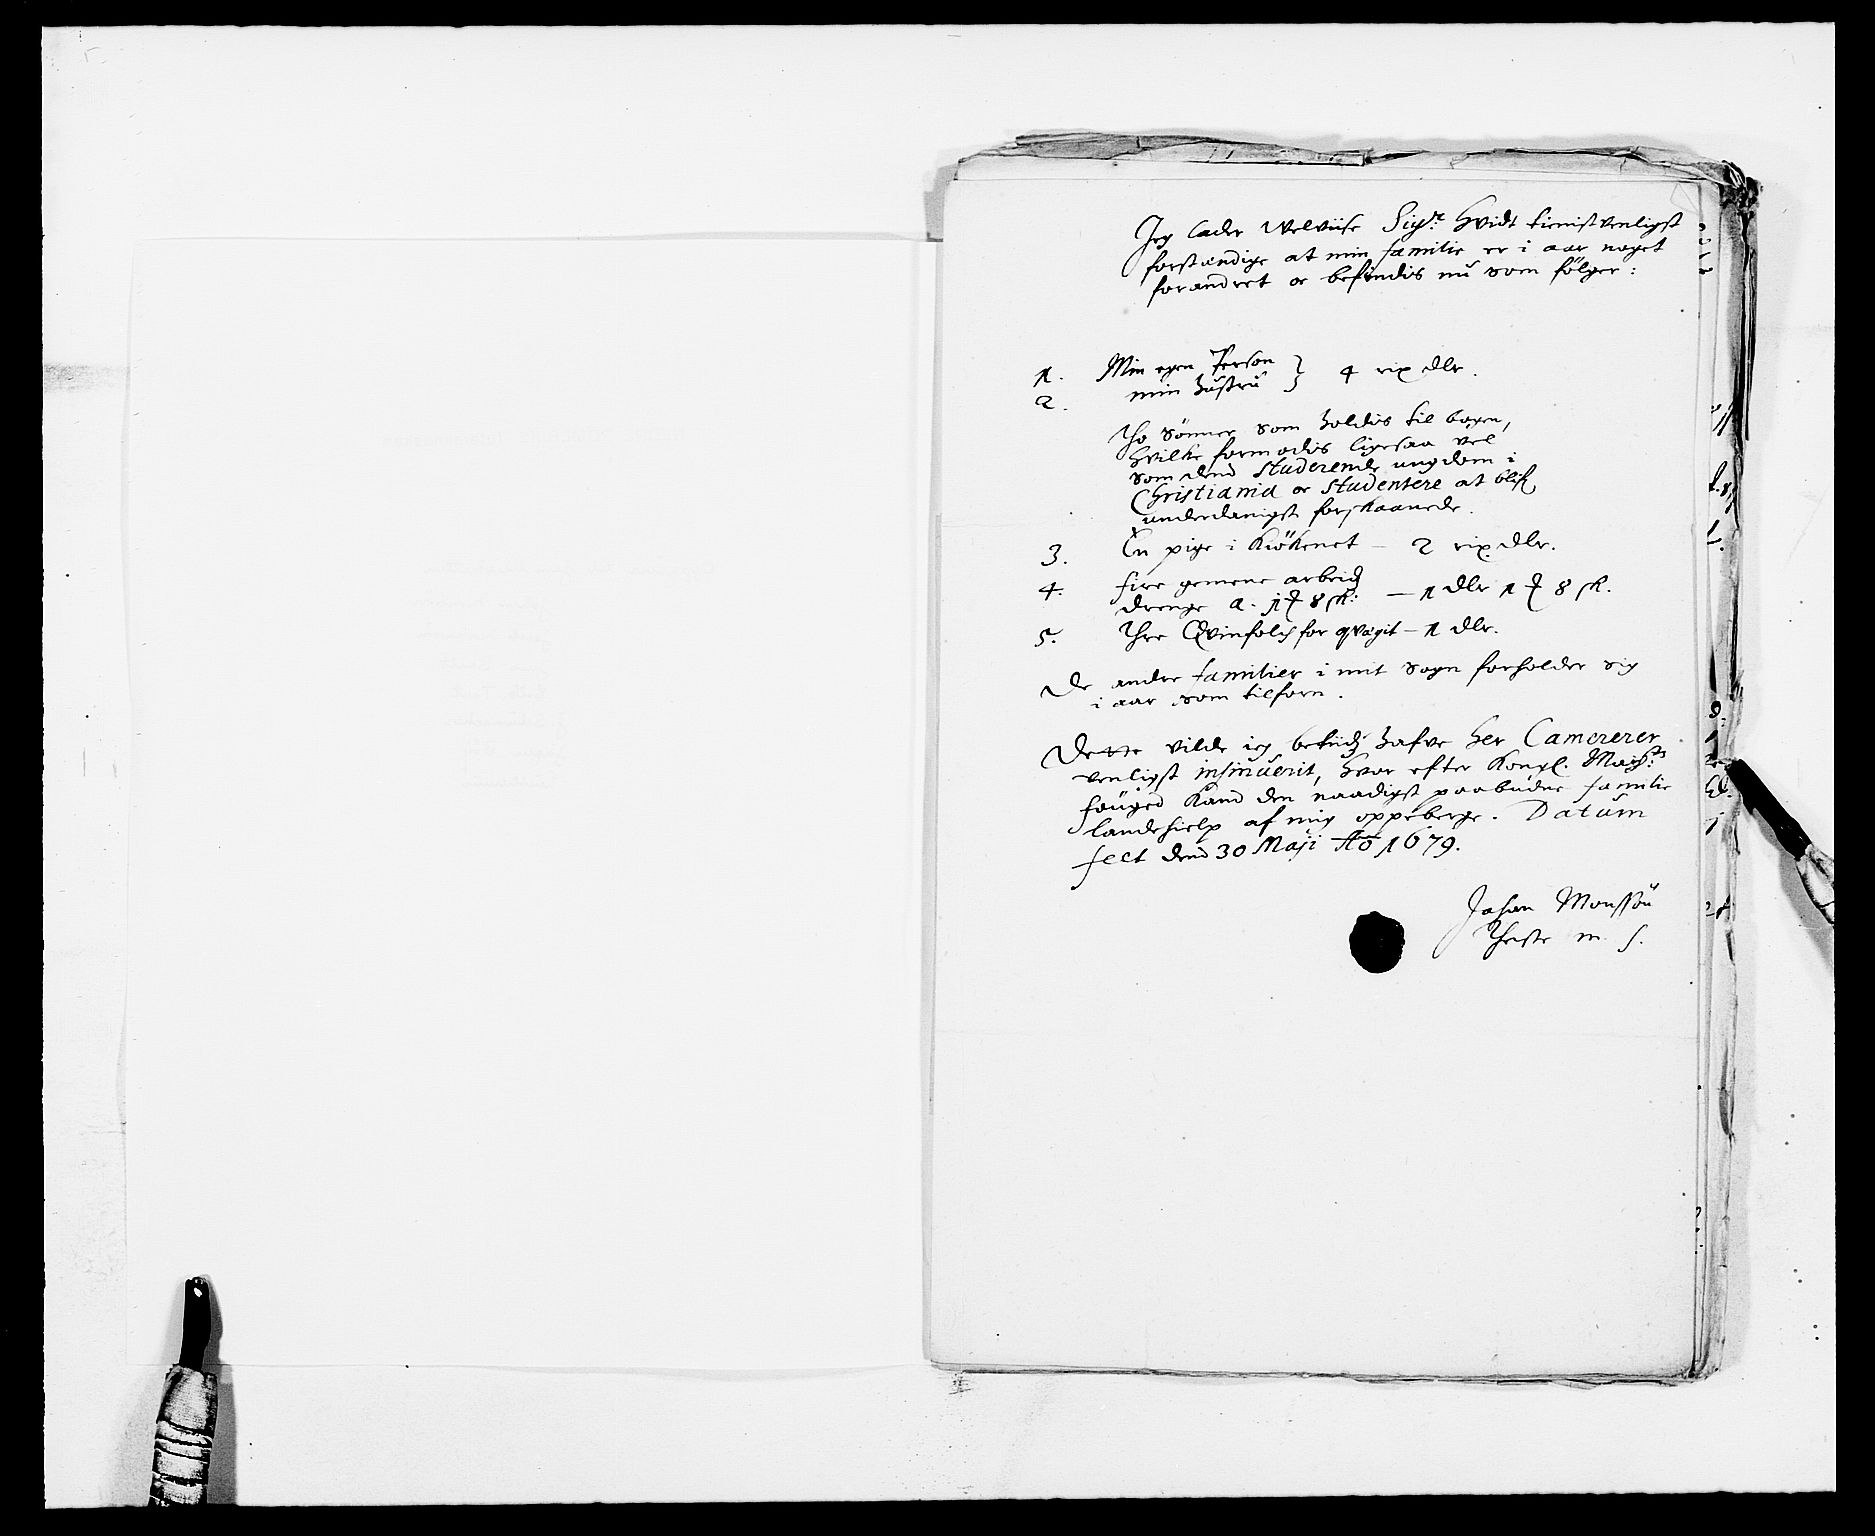 Jeg lader Welviise Sig.r Hvidt tienistvenligst
forstændige at min familie er i aar noget
forandret oc befindis nu som følger:
1. Min egen Person } 4 rix dlr.
2. min Hustru
Tho Sönner som holdis til bogen,
hvilke formodis ligesaa vel
som dend Studerende ungdom i
Christiania oc Studentere at blifve
underdanigst forskaanede.
3. En pige i Kiökenet — 2 rix dlr.
4. fire gemene arbeids
drenge a. 1 ƒ 8 sk: — 1 dlr 1 ƒ 8 sk.
5. Thre Qvinfolch for qvægit — 1 dlr.
De andre familier i mit Sogn forholder sig
i aar som tilforn.
Dette vilde ieg hafve Her Camererer
venligst insinuerit, hvor efter Kongl. Mayst:s
fouged Kand den naadigst paabudne familie
landehielp af mig oppeberge. Datum
feet dend 30 Maji Ao 1679.
Johan Monssön
m. s.